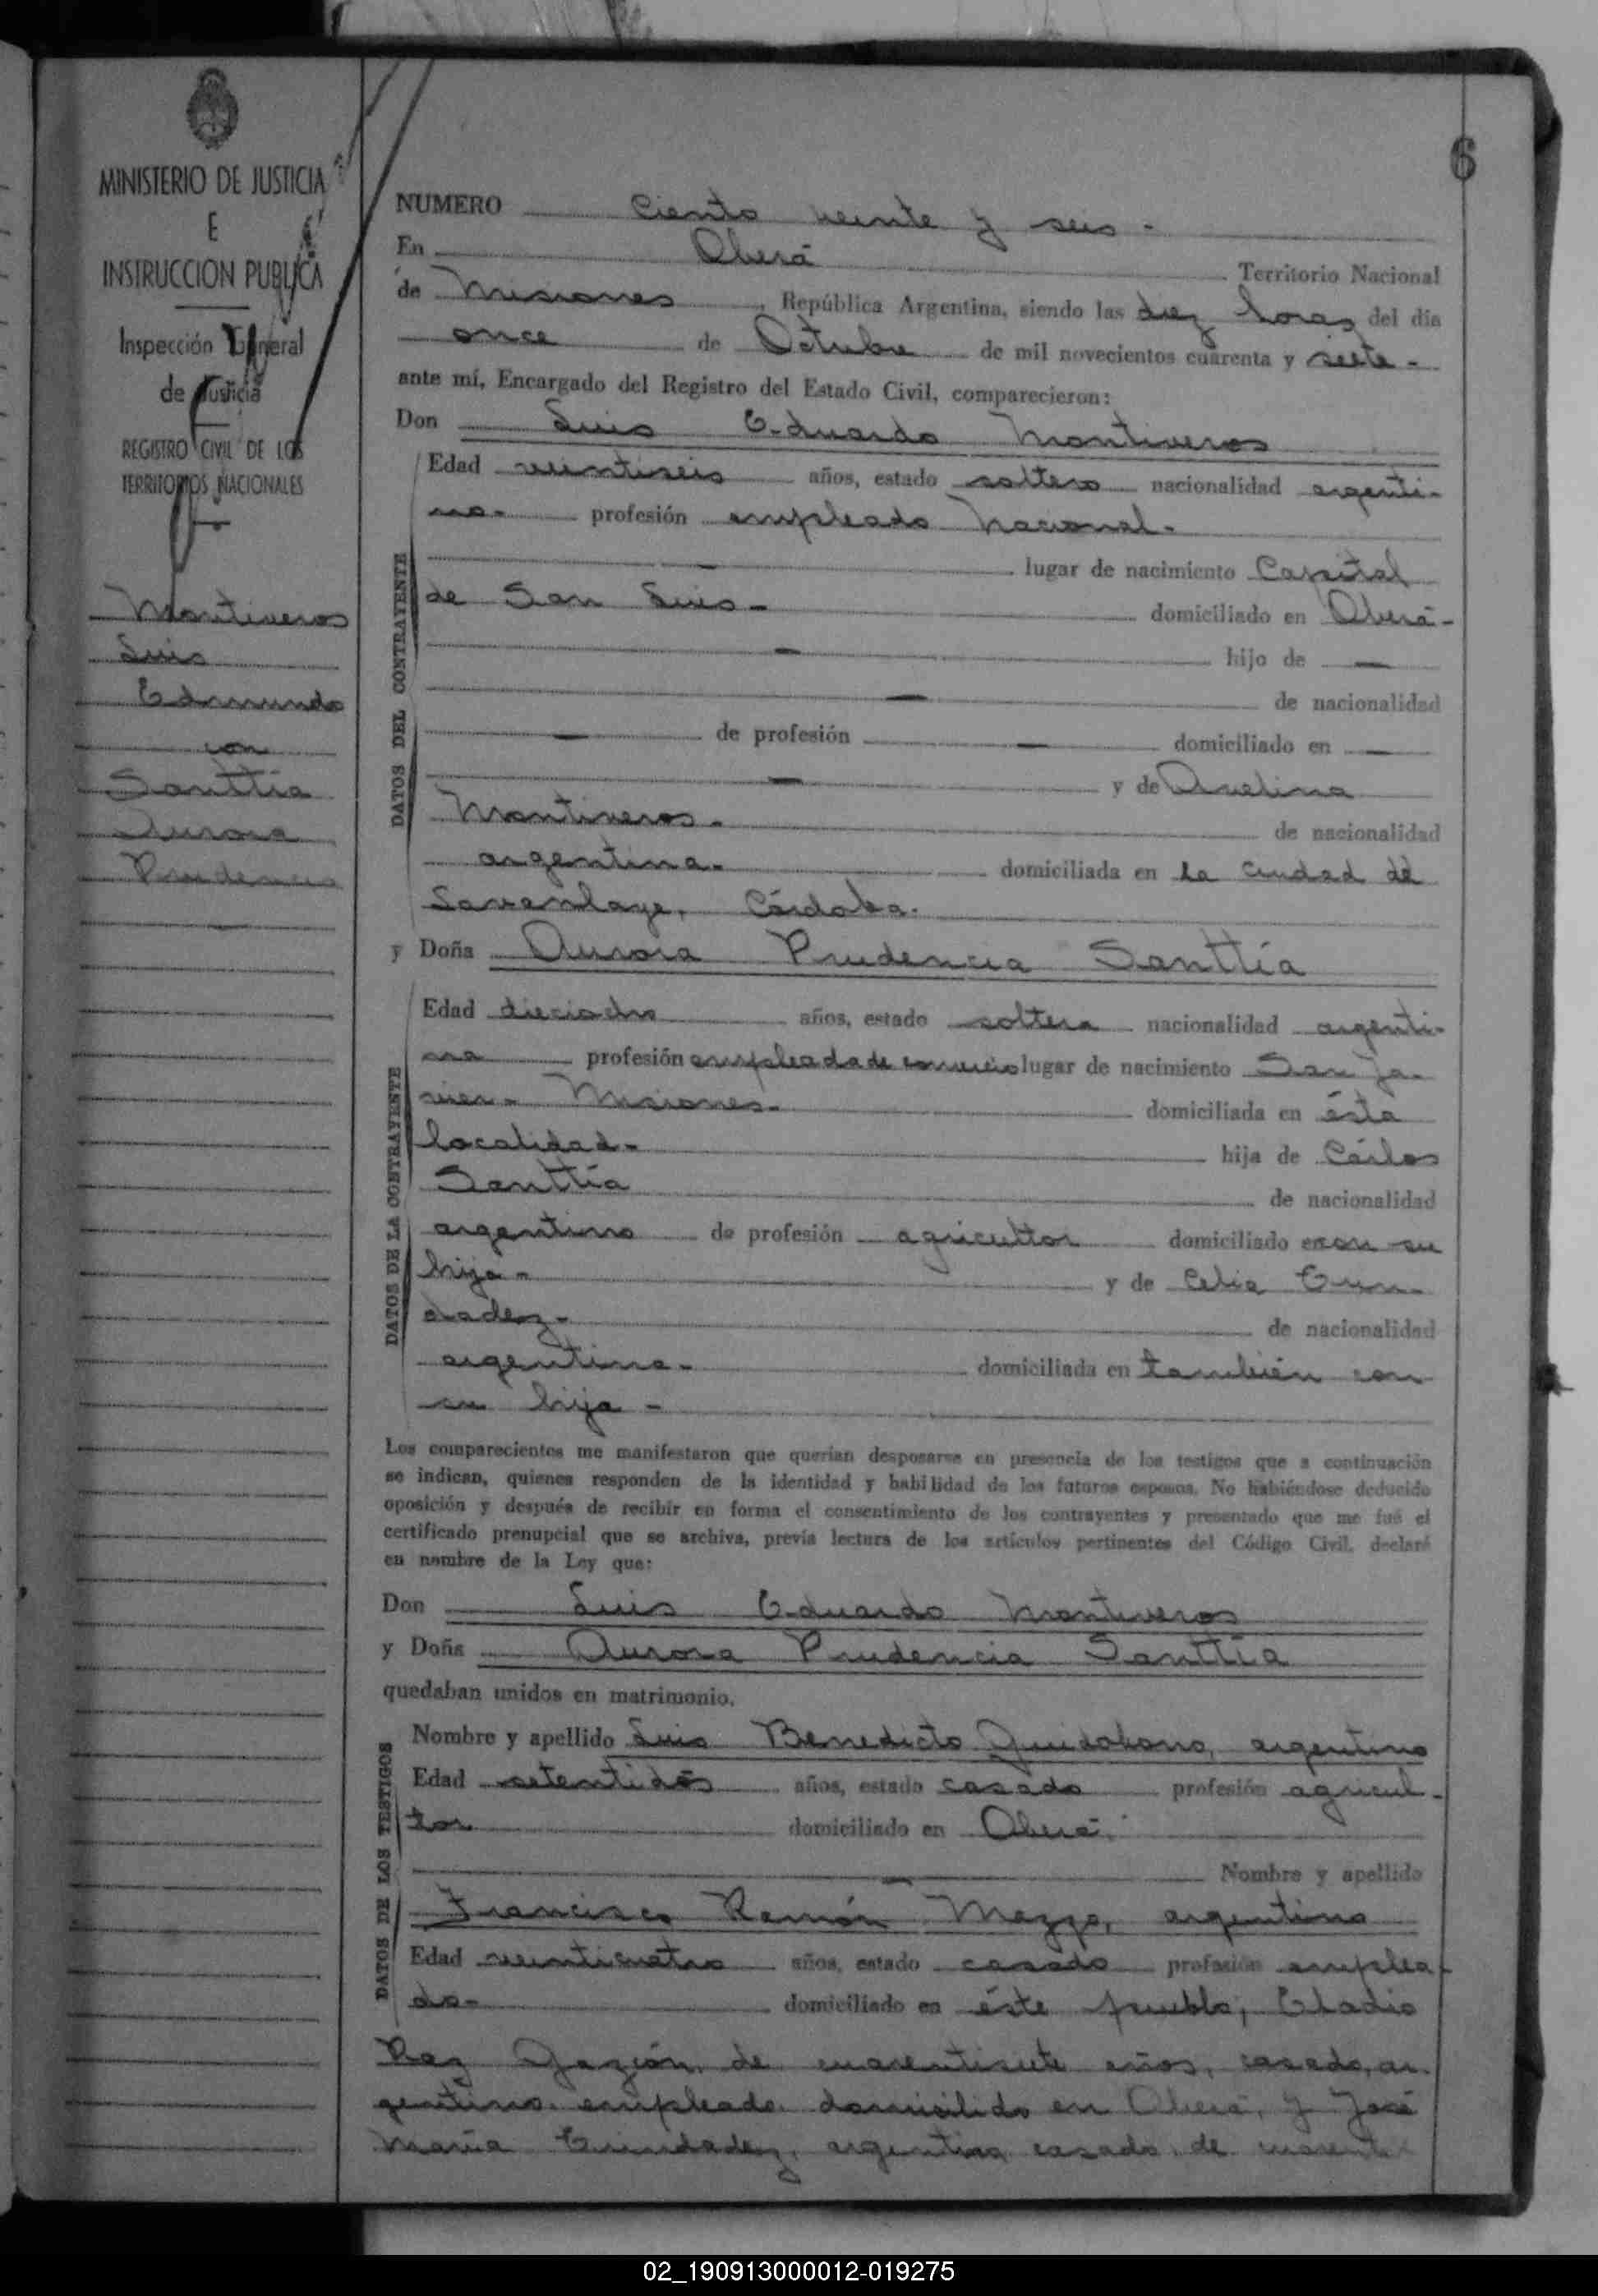 MINISTERIO DE JUSTICIA
E
INSTRUCCION PUBLICA
Inspección General
de Justicia
REGISTRO CIVIL DE LOS
TERRITORIOS NACIONALES
Montiveros
Luis
Edmundo
con
Santtía
Aurora
Prudencia
6
NUMERO Ciento veinte y seis -
En Oberá Territorio Nacional
de Misiones, República Argentina, siendo las diez horas del día
once de Octubre de mil novecientos cuarenta y siete -
ante mí, Encargado del Registro del Estado Civil, comparecieron:
Don Luis Eduardo Montiveros
DATOS DEL CONTRAYENTE
Edad veintiseis años, estado soltero nacionalidad argenti-
no - profesión empleado Nacional -
lugar de nacimiento Capital
de San Luis - domiciliado en Oberá -
- hijo de -
- de nacionalidad
- de profesión - domiciliado en -
- y de Avelina
Montiveros - de nacionalidad
argentina - domiciliada en la ciudad de
Córdoba.
y Doña Aurora Prudencia Santtía
DATOS DE LA CONTRAYENTE
Edad dieciocho años, estado soltera nacionalidad argenti-
na profesión empleada de comercio lugar de nacimiento San Ja-
vier - Misiones - domiciliada en ésta
localidad - hija de Cárlos
Santtía de nacionalidad
argentino de profesión agricultor domiciliado en con su
hija - y de Celia Trin-
dadez - de nacionalidad
argentina - domiciliada en también con
su hija -
Los comparecientes me manifestaron que querían desposarse en presencia de los testigos que a continuación
se indican, quienes responden de la identidad y habilidad de los futuros esposos. No habiéndose deducido
oposición y después de recibir en forma el consentimiento de los contrayentes y presentado que me fué el
certificado prenupcial que se archiva, previa lectura de los artículos pertinentes del Código Civil, declaré
en nombre de la Ley que:
Don Luis Eduardo Montiveros
y Doña Aurora Prudencia Santtía
quedaban unidos en matrimonio.
DATOS DE LOS TESTIGOS
Nombre y apellido Luis Benedicto Guidobono, argentino
Edad setentidós años, estado casado profesión agricul-
tor domiciliado en Oberá,
- Nombre y apellido
Francisco Ramón Mezzo, argentino
Edad veinticuatro años, estado casado profesión emplea-
do - domiciliado en éste pueblo, Eladio
de cuarentisiete años, casado, ar-
gentino, empleado domicilido en Oberá, y José
María Trindadez, argentino casado, de
02_190913000012-019275